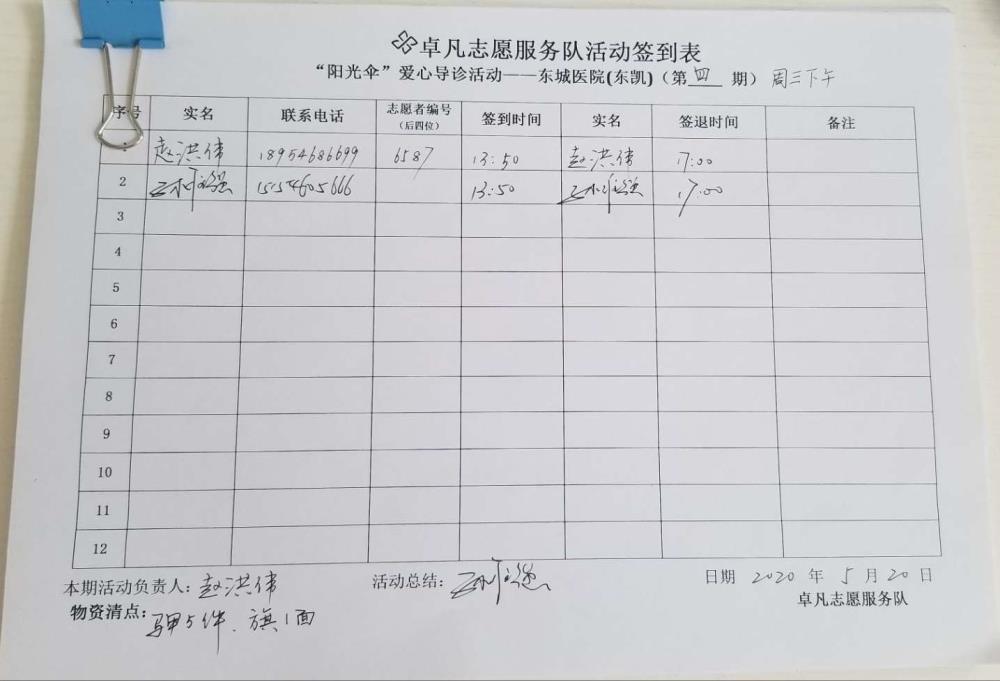 卓凡志愿服务队活动签到表
“阳光伞”爱心导诊活动——东城医院(东凯)（第四期）周三下午
序号 实名 联系电话 志愿者编号（后四位） 签到时间 实名 签退时间 备注
赵洪伟 18954686699 6587 13:50 赵洪伟 17:00
2 15154605666 13:50 17:00
3
4
5
6
7
8
9
10
11
12
本期活动负责人：赵洪伟 活动总结： 日期 2020 年 5 月 20 日
卓凡志愿服务队
物资清点： 5件、旗1面